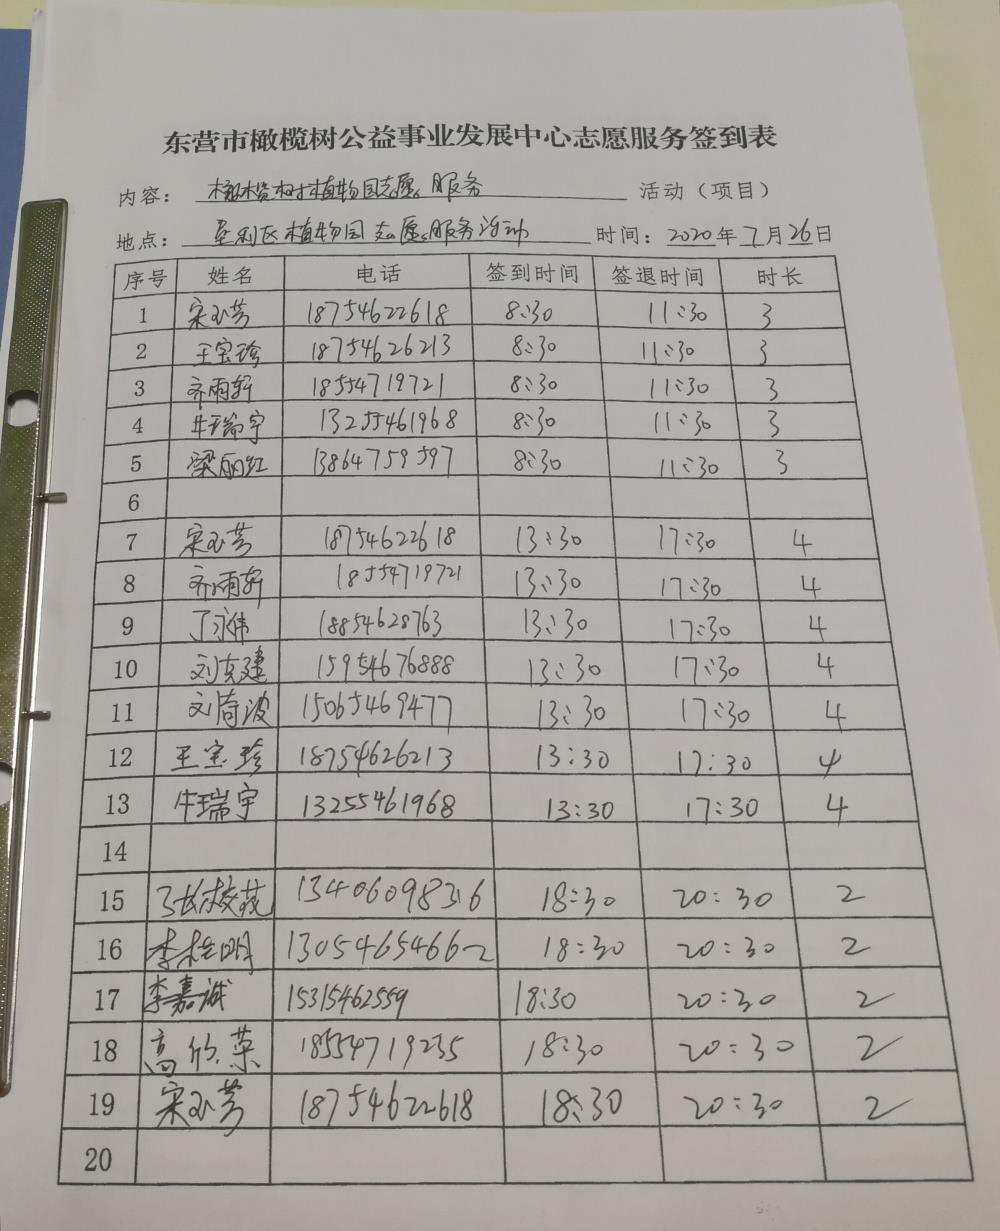 东营市橄榄树公益事业发展中心志愿服务签到表
内容：橄榄树植物园志愿服务 活动（项目）
地点：垦利区植物园志愿服务活动 时间：2020年7月26日
序号 姓名 电话 签到时间 签退时间 时长
1 宋玉芳 18754622618 8:30 11:30 3
2 王宝珍 18754626213 8:30 11:30 3
3 齐雨轩 18554719721 8:30 11:30 3
4 牛瑞宇 13255461968 8:30 11:30 3
5 梁丽红 13864759597 8:30 11:30 3
6
7 宋玉芳 18754622618 13:30 17:30 4
8 齐雨轩 18554719721 13:30 17:30 4
9 丁永伟 18854628763 13:30 17:30 4
10 刘克建 15954676888 13:30 17:30 4
11 刘 波 15065469477 13:30 17:30 4
12 王宝珍 18754626213 13:30 17:30 4
13 牛瑞宇 13255461968 13:30 17:30 4
14
15 13406098316 18:30 20:30 2
16 李桂明 13054654662 18:30 20:30 2
17 李嘉诚 15315462559 18:30 20:30 2
18 高欣荣 18554719235 18:30 20:30 2
19 宋玉芳 18754622618 18:30 20:30 2
20